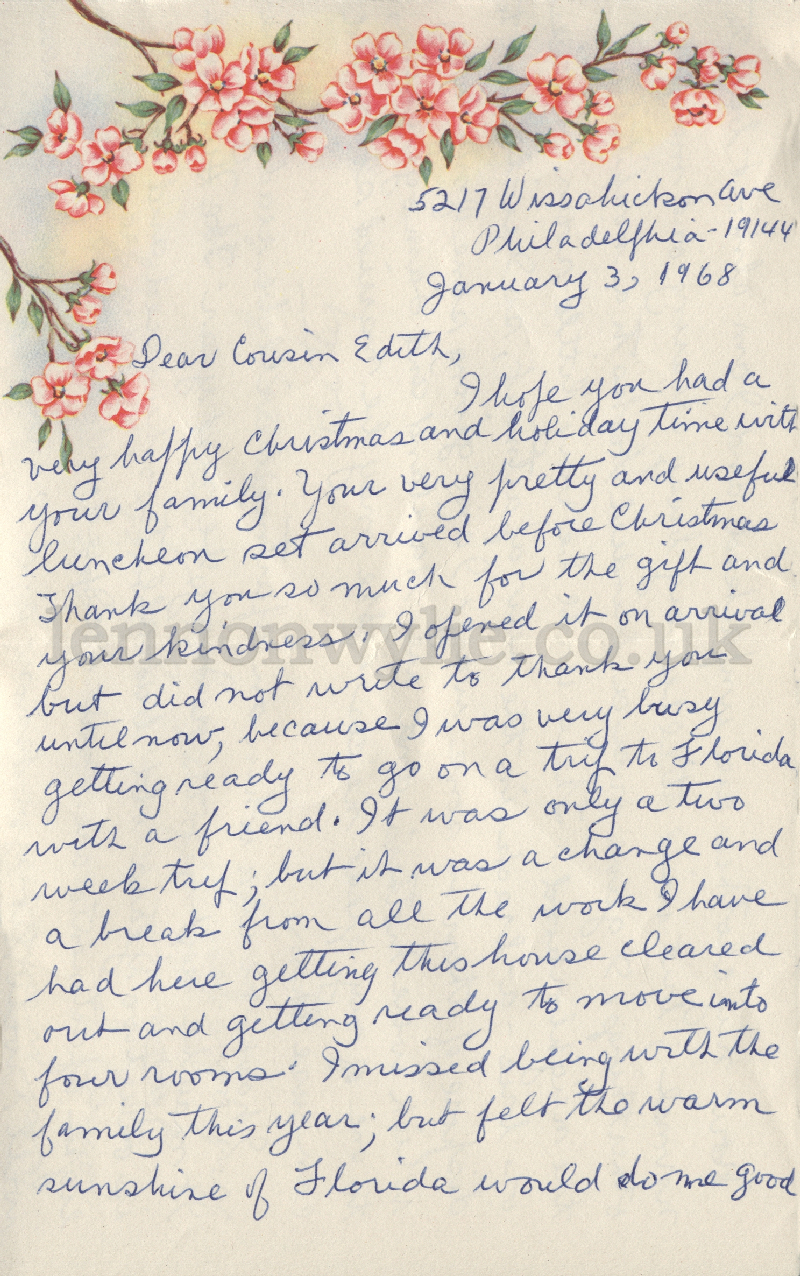 5217 Wissahickson Ave
Philadelphia - 19144
January 3, 1968
Dear Cousin Edith,
I hope you had a
very happy Christmas and holiday time with
your family. Your very pretty and useful
luncheon set arrived before Christmas
Thank you so much for the gift and
your kindness. I opened it on arrival
but did not write to thank you
until now, because I was very busy
getting ready to go on a trip to Florida
with a friend. It was only a two
week trip; but it was a change and
a break from all the work I have
had here getting this house cleared
out and getting ready to move into
four rooms. I missed being with the
family this year; but felt the warm
sunshine of Florida would do me good
lennonwylie.co.uk